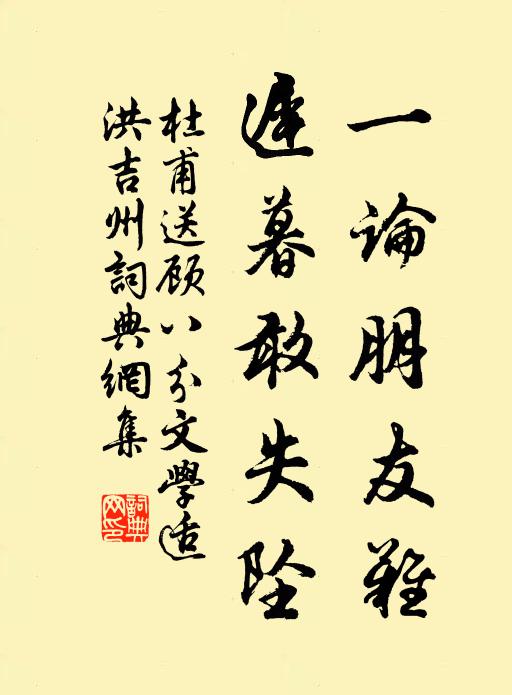 一论朋友难
遲暮敢失坠
杜甫送顾八分文學适
洪吉州詞典網集
詞典网印